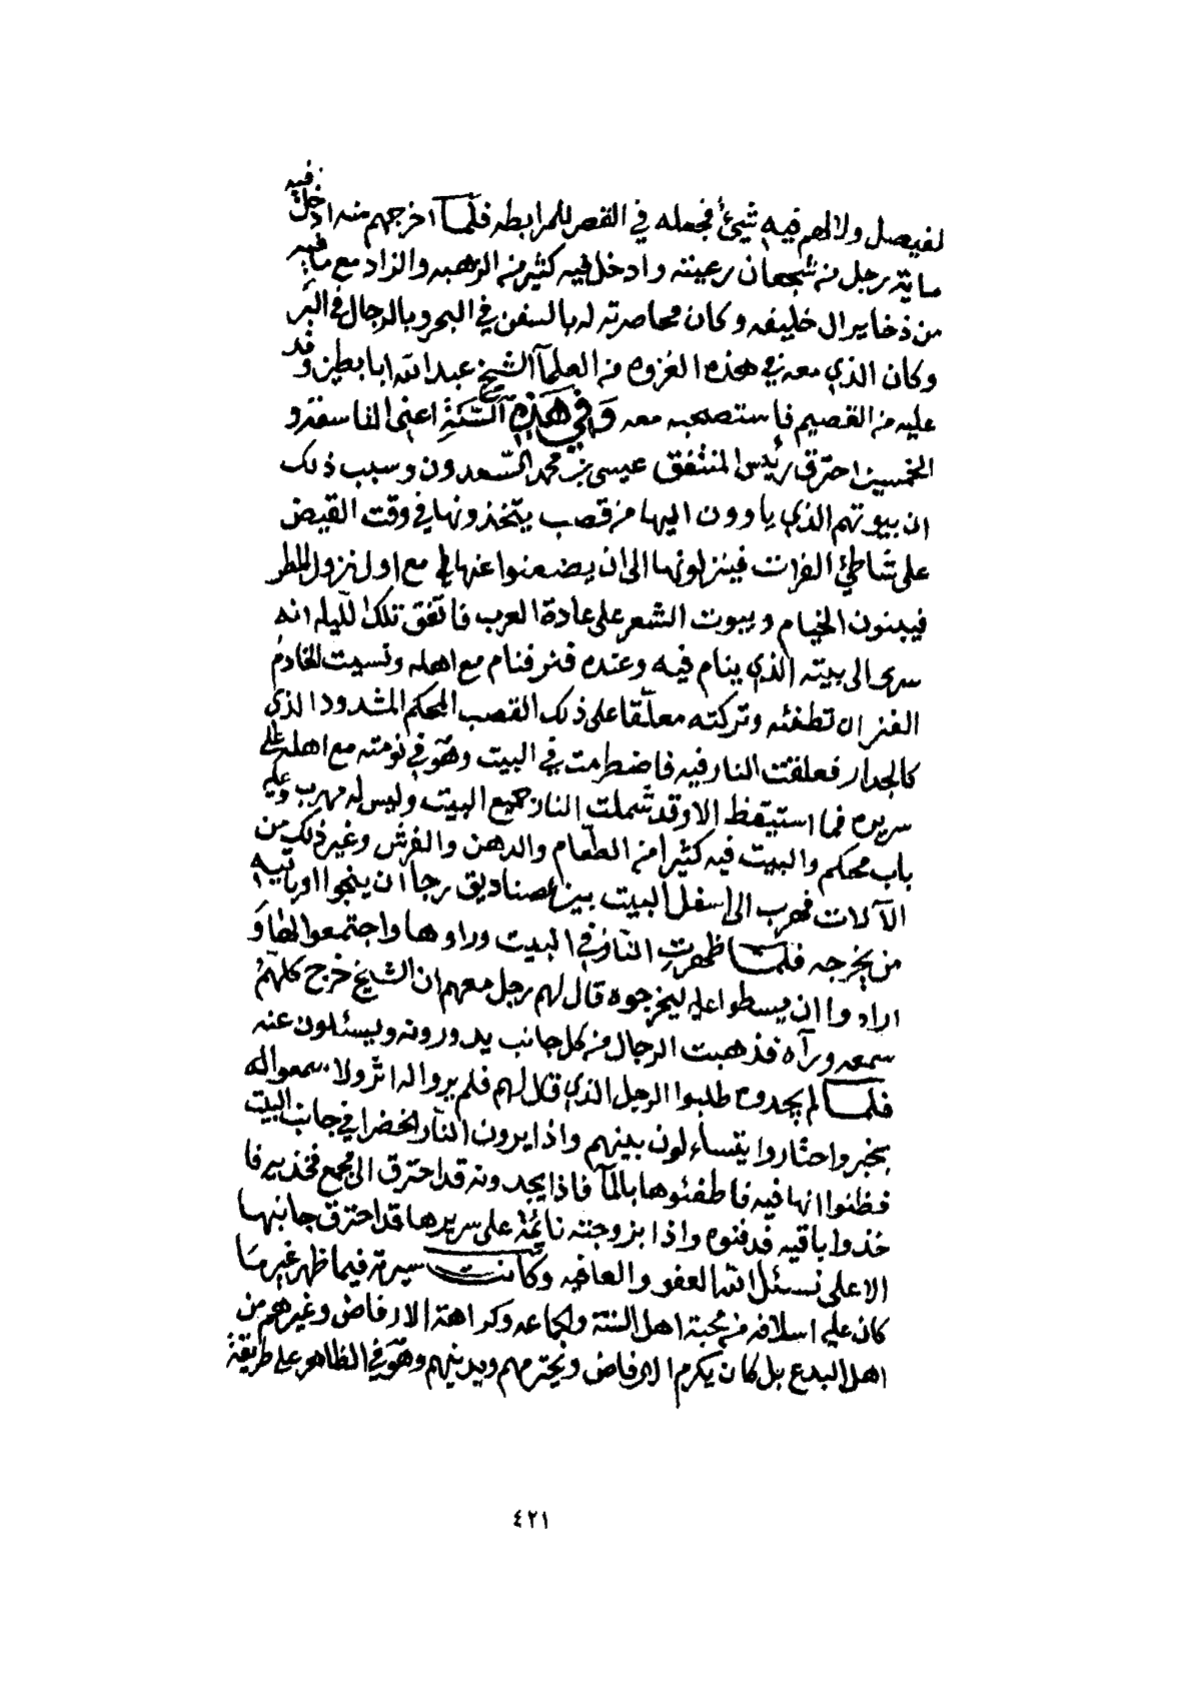 لفيصل ولا لهم فيه شيئ فجعله في القصر للمرابطه فلما اخرجهم منه ادخل فيه
ماية رجل من شجعان رعيته وادخل فيه كثير من الرهبه والزاد مع ما فيه
من ذخاير ال خليفه وكان محاصرته له بالسفن في البحر وبالرجال في البر
وكان الذي معه في هذه الغزوه من العلمآ الشيخ عبدالله ابا بطين وفد
عليه من القصيم فاستصحبه معه وَفي هَذِهِ السَّنَةِ اعني السادسة و
الخمسين احترق رئيس المنتفق عيسى بن محمد السّعدون وسبب ذلك
ان بيوتهم الذي ياوون اليها من قصب يتخذونها في وقت القيض
على شاطئ الفرات فينزلونها الى ان يضعنوا عنها مع اول نزول المطر
فيبنون الخيام وبيوت الشعر على عادة العرب فاتفق تلك اللّيله انه
سرى الى بيته الذي ينام فيه وعنده فنر فنام مع اهله ونسيت الخادمُ
الفنر ان تطفئه وتركته معلّقا على ذلك القصب المحكم المشدود الذي
كالجدار فعلقت النار فيه فاضطرمت في البيت وهو في نومته مع اهله على
سريره فما استيقظ الا وقد شملت النار جميع البيت وليس له مهرب وعليه
باب محكم والبيت فيه كثيرا من الطّعام والدهن والفرش وغير ذلك من
الآلات فهرب الى اسفل البيت بين الصناديق رجا ان ينجوا او ياتيه
من يخرجه فلمـا ظهرت النّار في البيت وراوها واجتمعوا لها وَ
ارادوا ان يسطوا عليه ليخرجوه قال لهم رجل معهم ان الشيخ خرج كلهمُ
سمعه ورآه فذهبت الرجال من كل جانب يدورونه ويسئلون عنه
فلمـا لم يجدوه طلبوا الرجل الذي قال لهم فلم يروا له اثر ولا سمعوا له
بخبر واحتاروا يتساءلون بينهم واذا يرون النّار الخضرا في جانب البيت
فظنوا انها فيه فاطفئوها بالمآ فاذا يجدونه قد احترق الى مجمع فخذيه فا
خذوا باقيه فدفنوه واذا بزوجته نايمة على سريرها قد احترق جانبها
الاعلى نسئل الله العفو والعافيه وكانت سيرته فيما ظهر غير ما
كان عليه اسلافه من محبة اهل السنة والجماعه وكراهة الارفاض وغيرهم من
اهل البدع بل كان يكرم الارفاض ويحترمهم ويدنيهم وهو في الظاهر على طريقة
٤٢١